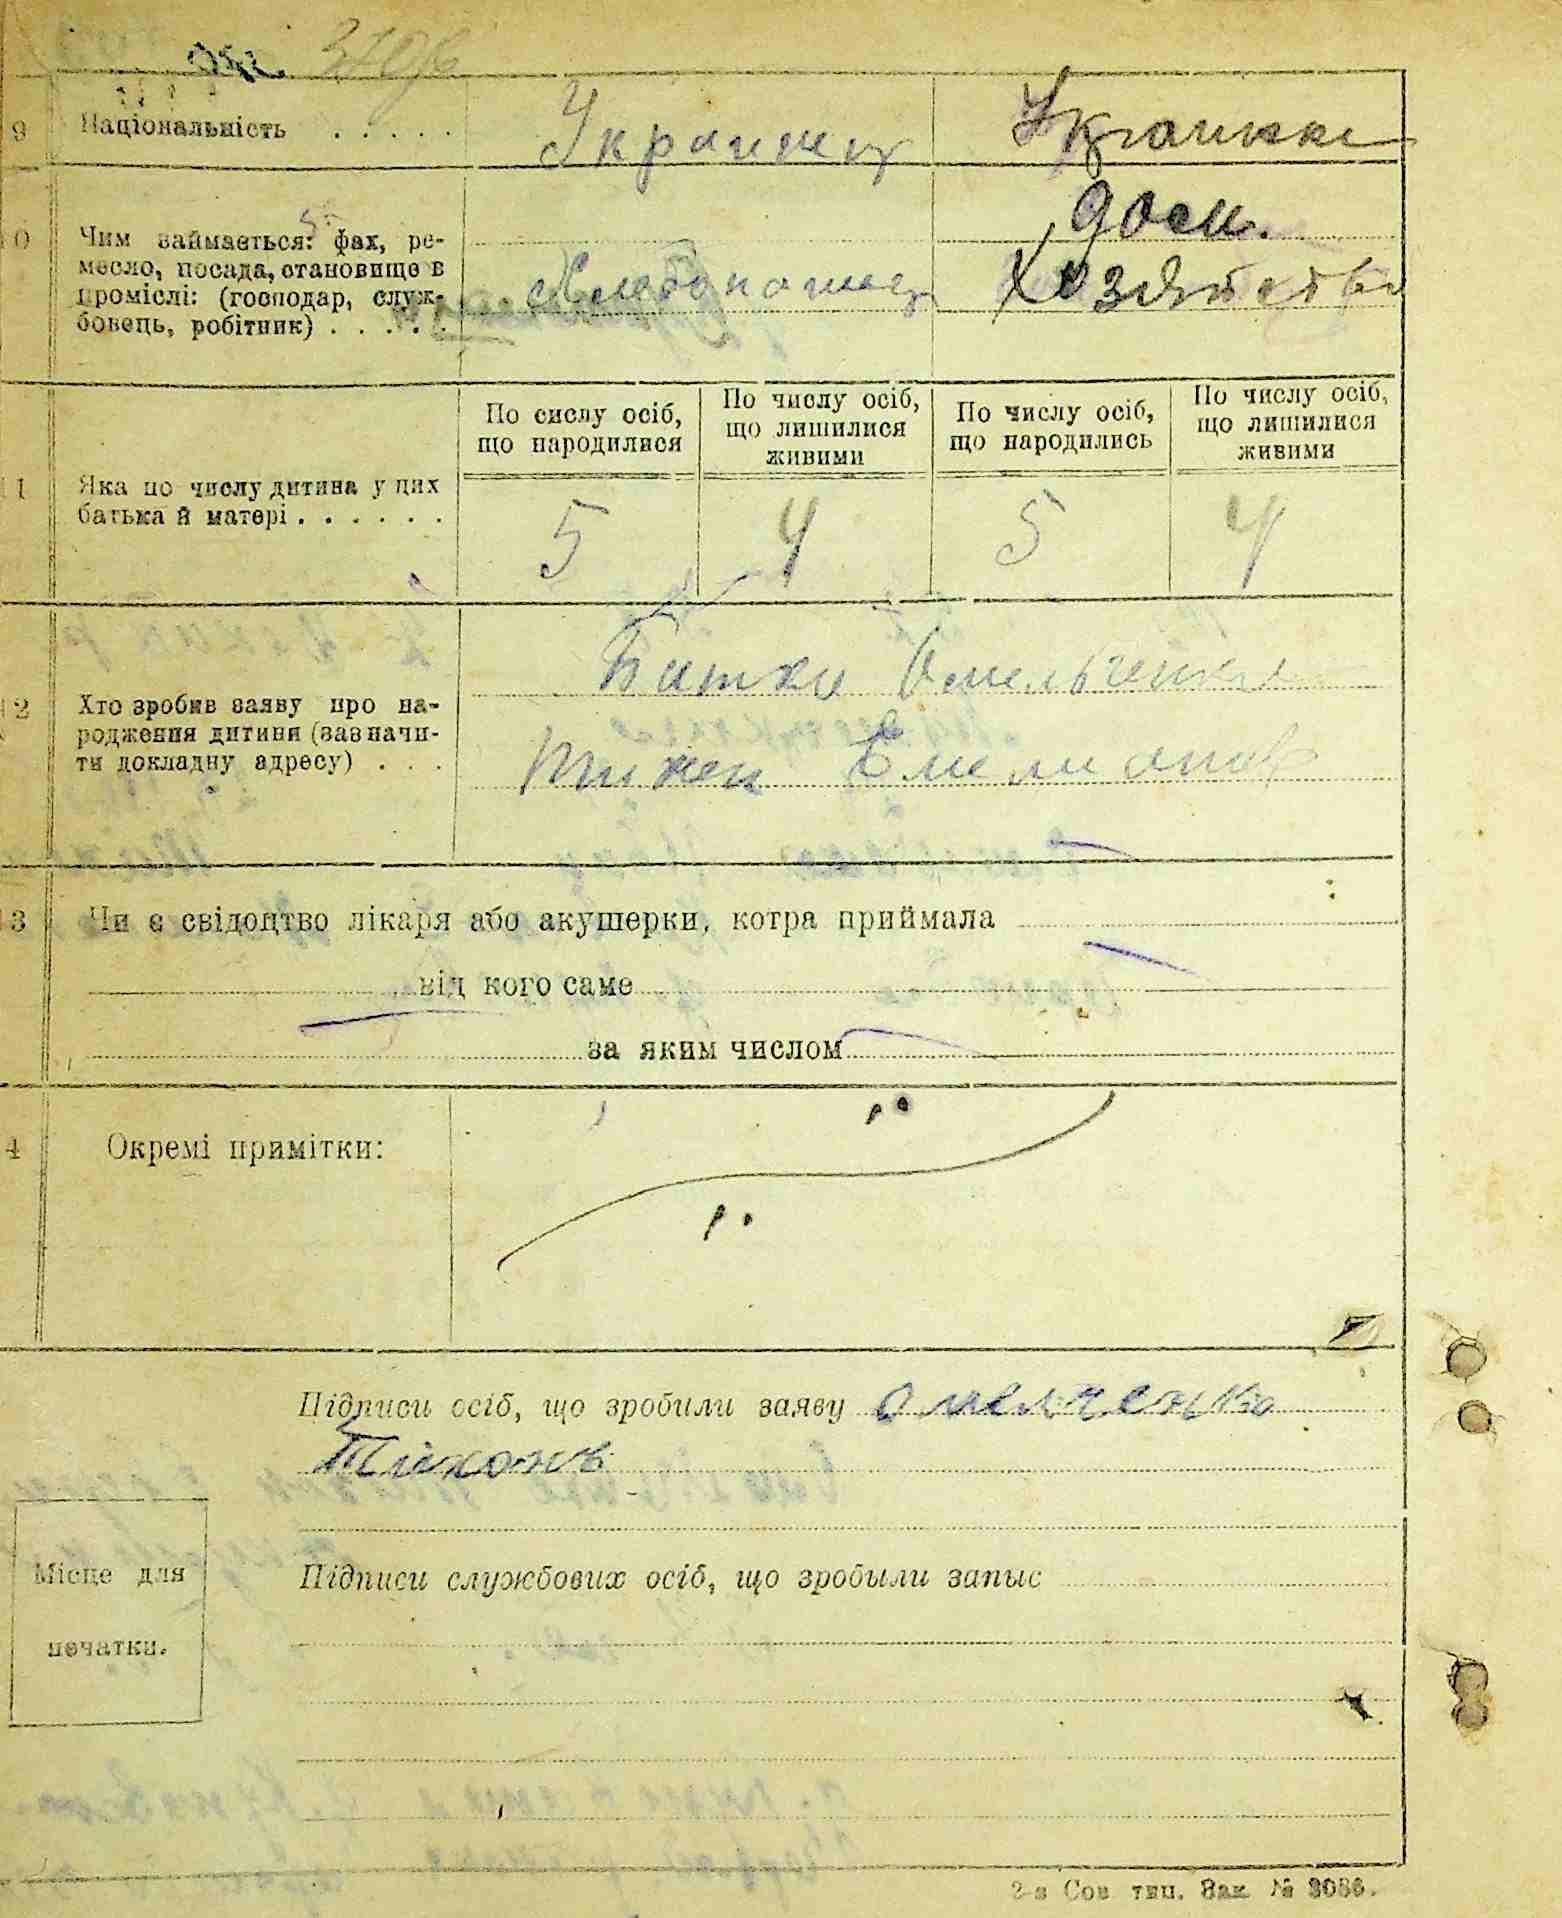 3706
9 Національність . . . . . Украинец Украинка
10 Чим займається: фах, ре-
месло, посада, становище в
проміслі: (господар, служ-
бовець, робітник) . . . . .
Хлебопашец
дом.
Хозяйство
По сислу осіб,
що народилися
По числу осіб,
що лишилися
живими
По числу осіб,
що народились
По числу осіб,
що лишилися
живими
11 Яка по числу дитина у цих
батька й матері . . . . . .
5 4 5 4
12 Хто зробив заяву про на-
родження дитини (зазначи-
ти докладну адресу) . . .
Батько Омельченко
Тихон Емельянов
13 Чи є свідоцтво лікаря або акушерки, котра приймала
від кого саме
за яким числом
14 Окремі примітки:
Підписи осіб, що зробили заяву Омелченко
Тихонъ
Місце для
печатки.
Підписи службових осіб, що зробыли запыс
2-я Сов тип. Зак № 3086.